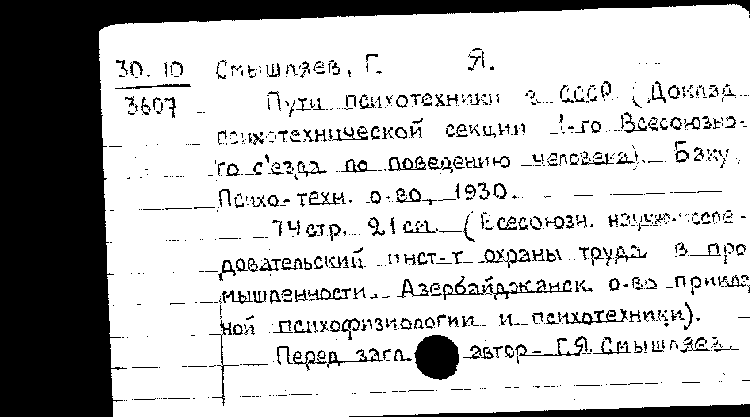 30.10 Смышляев, Г. Я.
3607 Пути психотехники в СССР (Доклад
психотехнической секции 1-го Всесоюзно-
го с'езда по поведению человека). Баку,
Психо-техн. о-во, 1930.
74 стр. 21 см. (Всесоюзн. научно-иссле-
довательский инст-т охраны труда в про
мышленности. Азербайджанск. о-во прикла
ной психофизиологии и психотехники).
Перед загл. автор - Г.Я. Смышляев.